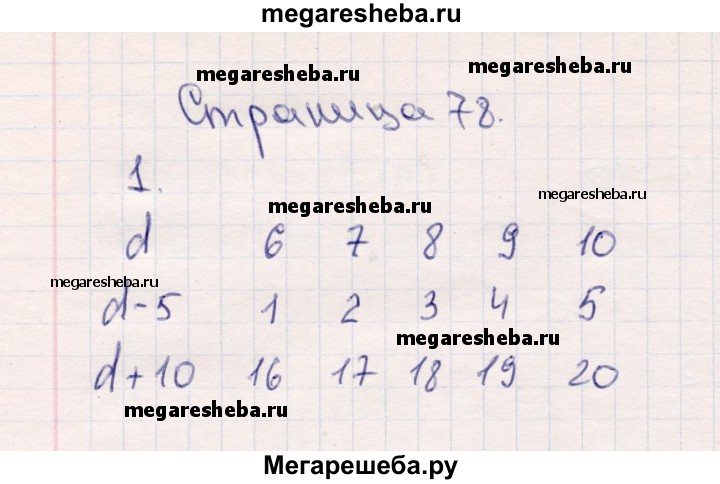 megaresheba.ru
megaresheba.ru megaresheba.ru
Страница 78.
1.
megaresheba.ru megaresheba.ru
d 6 7 8 9 10
megaresheba.ru
d-5 1 2 3 4 5
megaresheba.ru
d+10 16 17 18 19 20
megaresheba.ru
Мегарешеба.ру